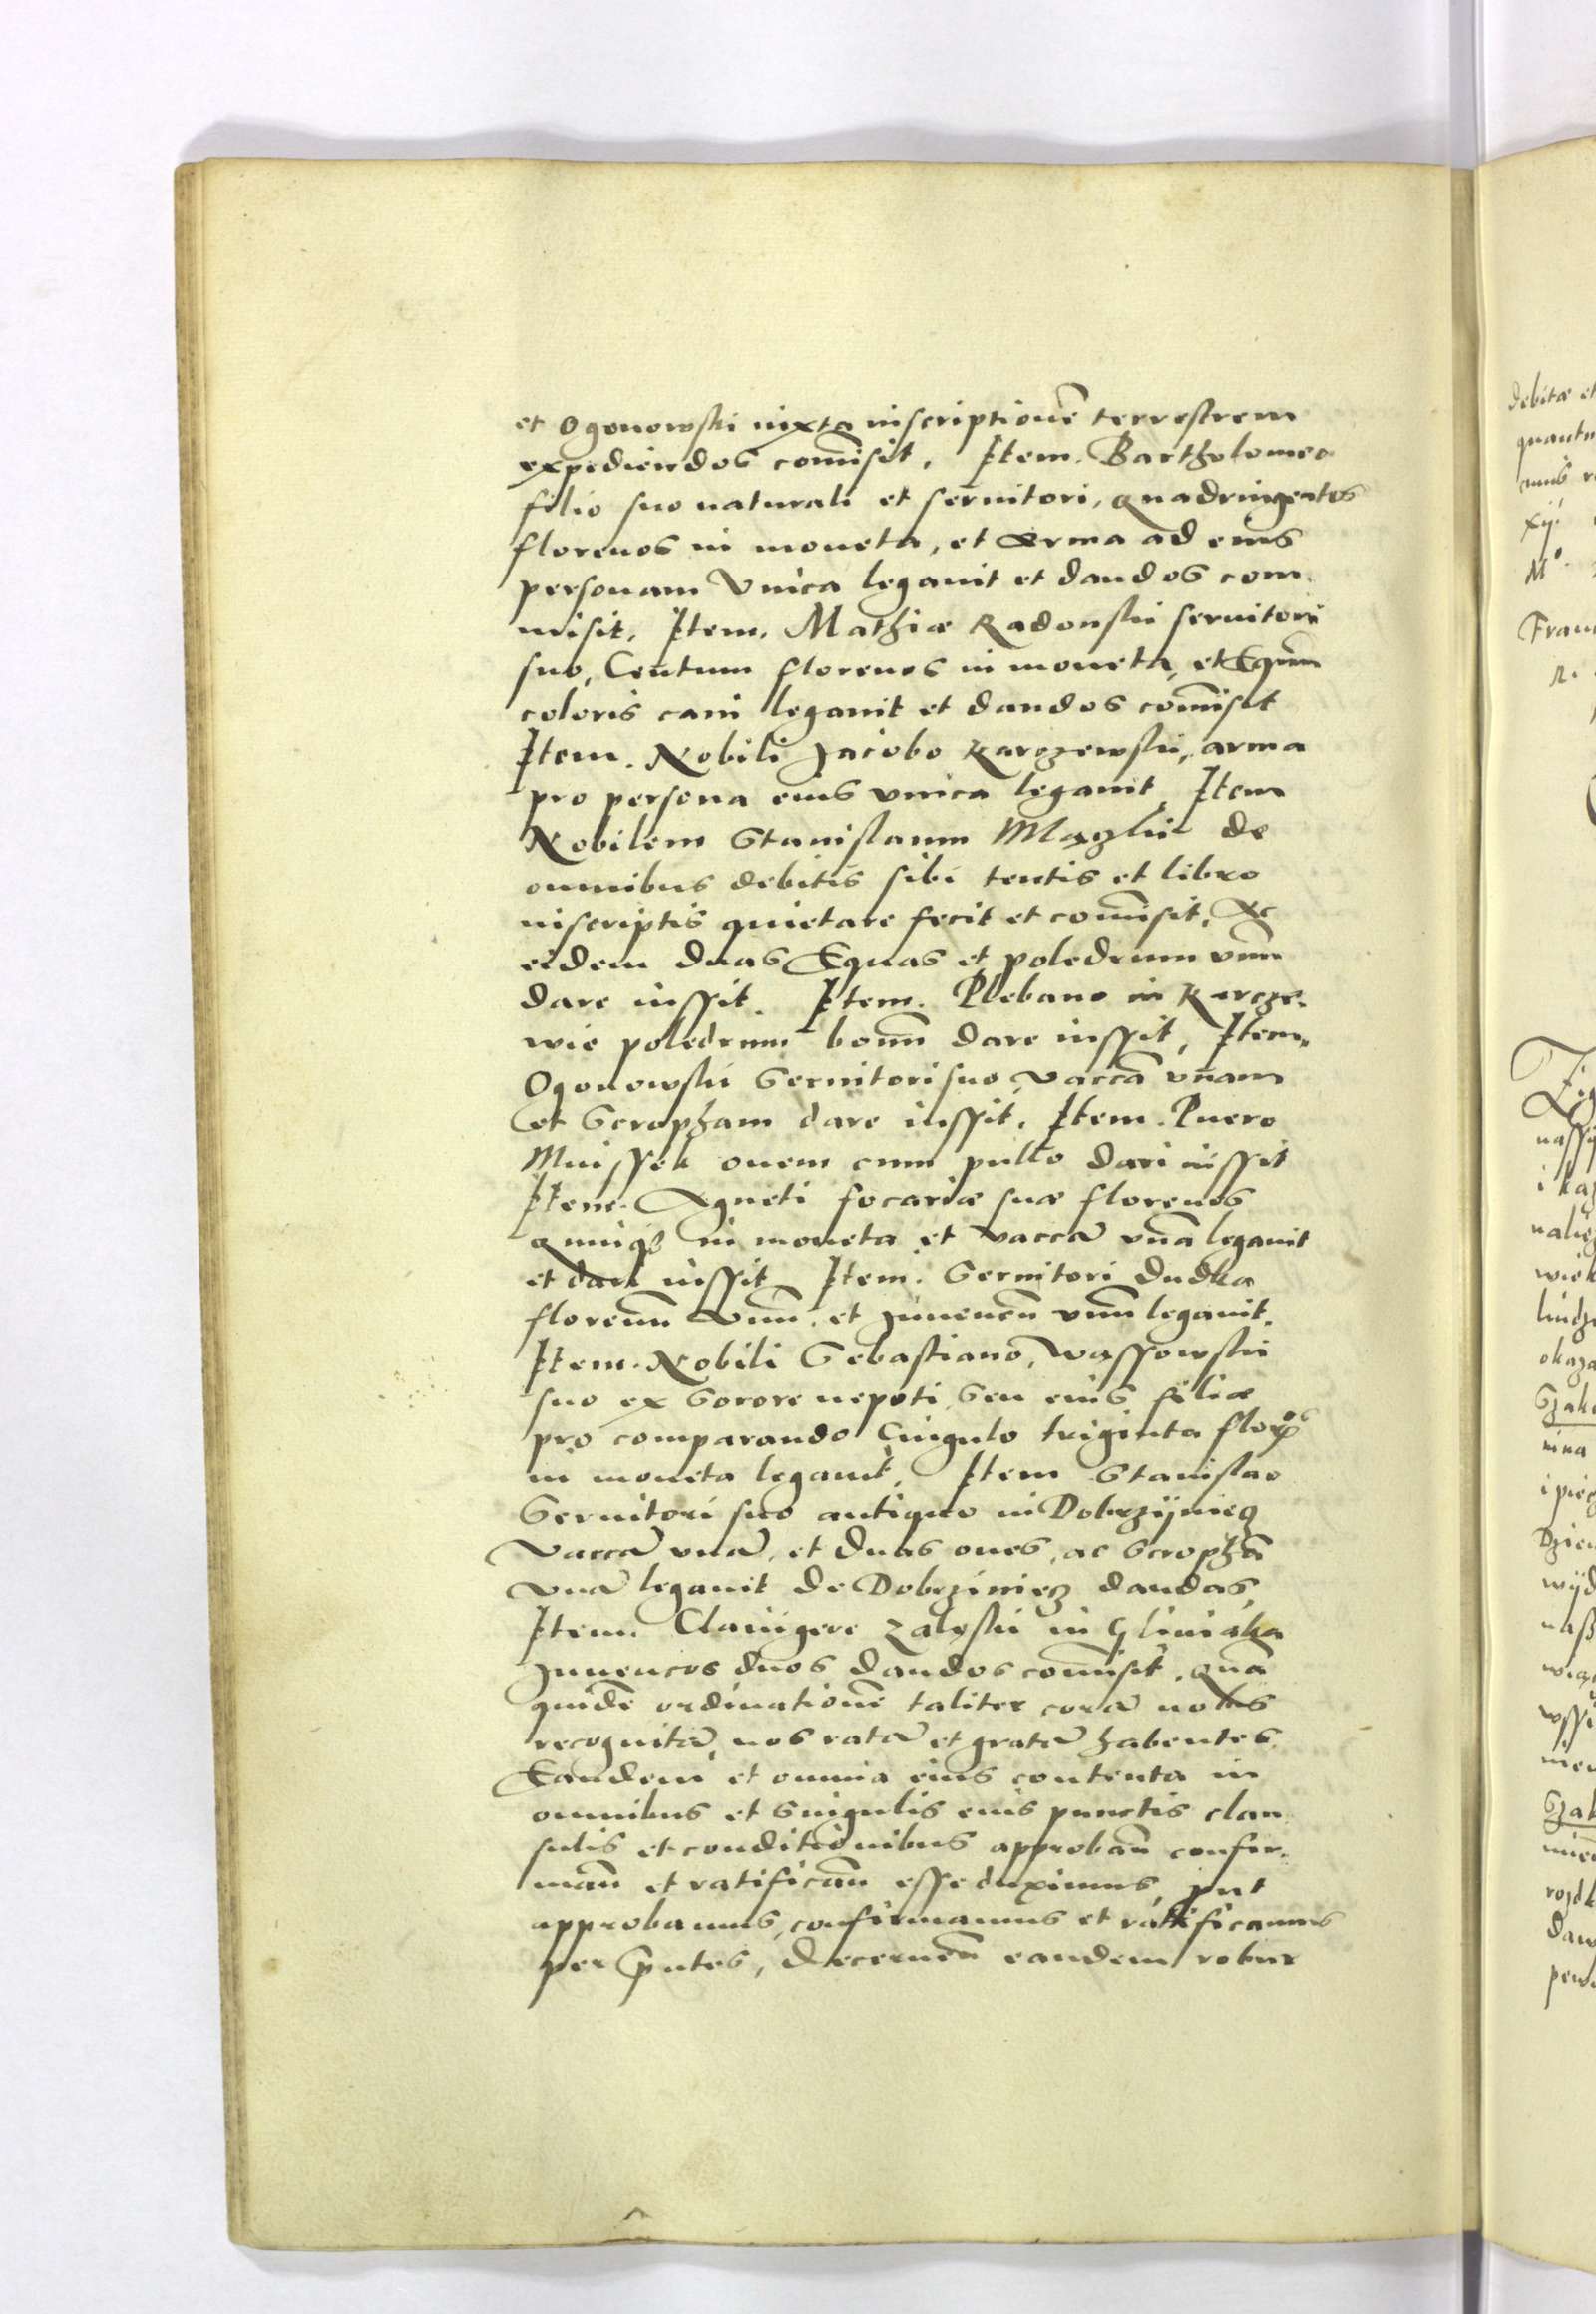 et Ogonowski iuxta inscriptionē terrestrem
expediendos com̄isit. Item. Bartholomeo
filio suo naturali et seruitori, quadringentos
florenos in moneta, et arma ad eius
personam vnica legauit et dandos com
misit. Item. Mathiæ Radonski seruitori
suo, Centum florenos in moneta, et Equū
coloris cani legauit et dandos com̄isit
Item. Nobili Jacobo Karczewski, arma
pro persona eius vnica legauit, Item
Nobilem Stanislaum de
omnibus debitis sibi tentis et libro
inscriptis quietare fecit et com̄isit, Ac
eidem duas Equas et poledrum vnū
dare iussit. Item. Plebano in Karcze-
wie poledrum bonū dare iussit, Item,
Ogonowski Seruitori suo, vaccā vnam
et Scropham dare iussit. Item. Puero
ouem cum pullo dari iussit
Item. Agneti focariæ suæ florenos
quinq₃ in moneta et vaccā vnā legauit
et dari iussit Item. Seruitori Dudka
florenū vnū. et Juuencū vnū legauit.
Item. Nobili Sebastiano, Wassowski
suo ex Sorore nepoti Seu eius filiæ
pro comparando Cingulo triginta flor
in moneta legauit. Item Stanislao
Seruitori suo antiquo in Dobrzijniecz
vaccā vnā, et duas oues, ac Scrophā
vnā legauit de Dobrziniecz dandas,
Item Clauigero Zaleski in Glinianka
Juuencos duos dandos com̄isit. Quā
quidē ordinationē taliter corā nobis
recognitā, nos ratā et gratā habentes.
Eandem et omnia eius contenta in
omnibus et Singulis eius punctis clau
sulis et conditionibus approban̄ confir-
man̄ et ratifican̄ esse duximus, p̄ut
approbamus, confirmamus et ratificamus
per p̄ntes, decernen̄ eandem robur
debitæ et
xij.
M°.
i
Dzien